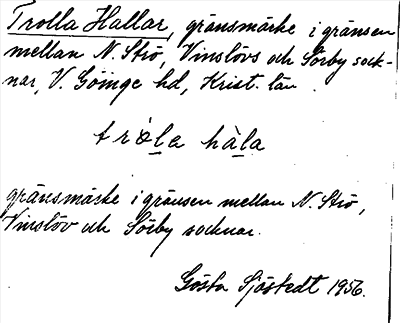 Trolla Hallar, gränsmärke i gränsen
mellan N. Strö, Vinslövs och Sörby sock-
nar, V. Göinge hd, Krist. län.
tròla hàla
gränsmärke i gränsen mellan N. Strö,
Vinslöv och Sörby socknar.
Gösta Sjöstedt 1956.